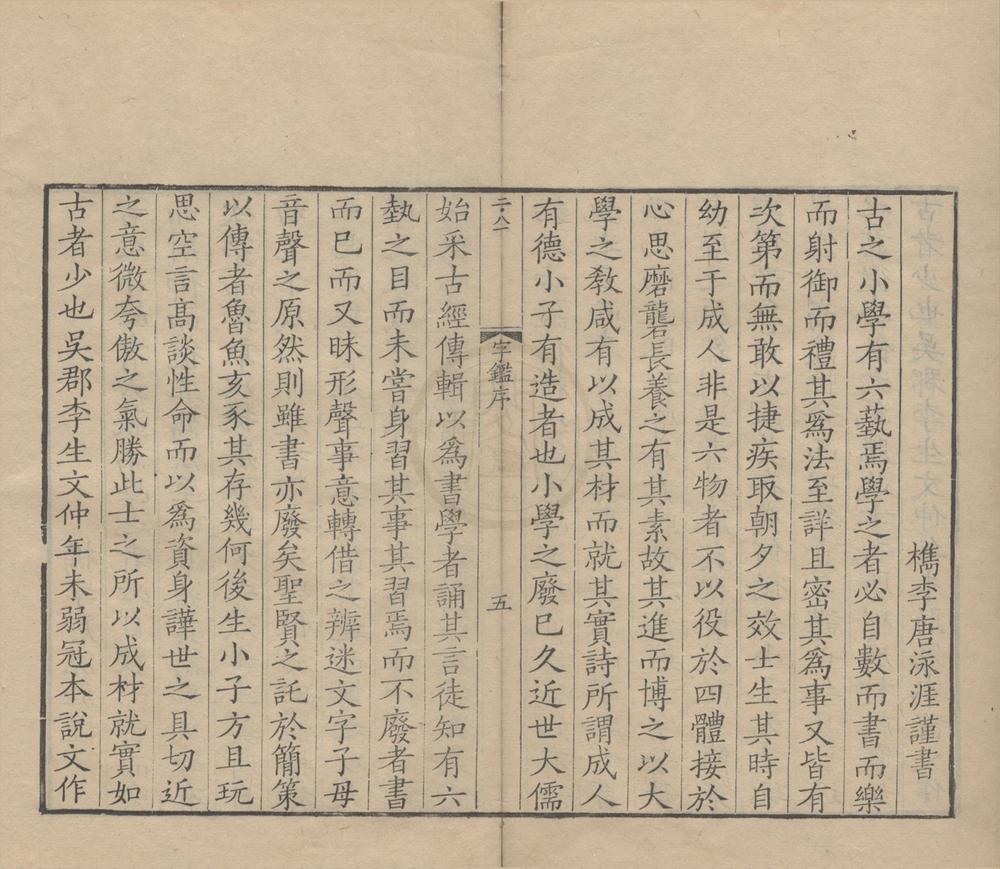 檇李唐泳涯謹書
古之小學有六藝焉學之者必自數而書而樂
而射御而禮其爲法至詳且密其爲事又皆有
次第而無敢以捷疾取朝夕之效士生其時自
幼至于成人非是六物者不以役於四體接於
心思磨礱長養之有其素故其進而博之以大
學之敎咸有以成其材而就其實詩所謂成人
有德小子有造者也小學之廢已久近世大儒
二·八
字鑑序
五
始采古經傳輯以爲書學者誦其言徒知有六
埶之目而未甞身習其事其習焉而不廢者書
而已而又昧形聲事意轉借之辨迷文字子母
音聲之原然則雖書亦廢矣聖賢之託於簡策
以傳者魯魚亥豕其存幾何後生小子方且玩
思空言高談性命而以爲資身譁世之具切近
之意微夸傲之氣勝此士之所以成材就實如
古者少也吳郡李生文仲年未弱冠本說文作